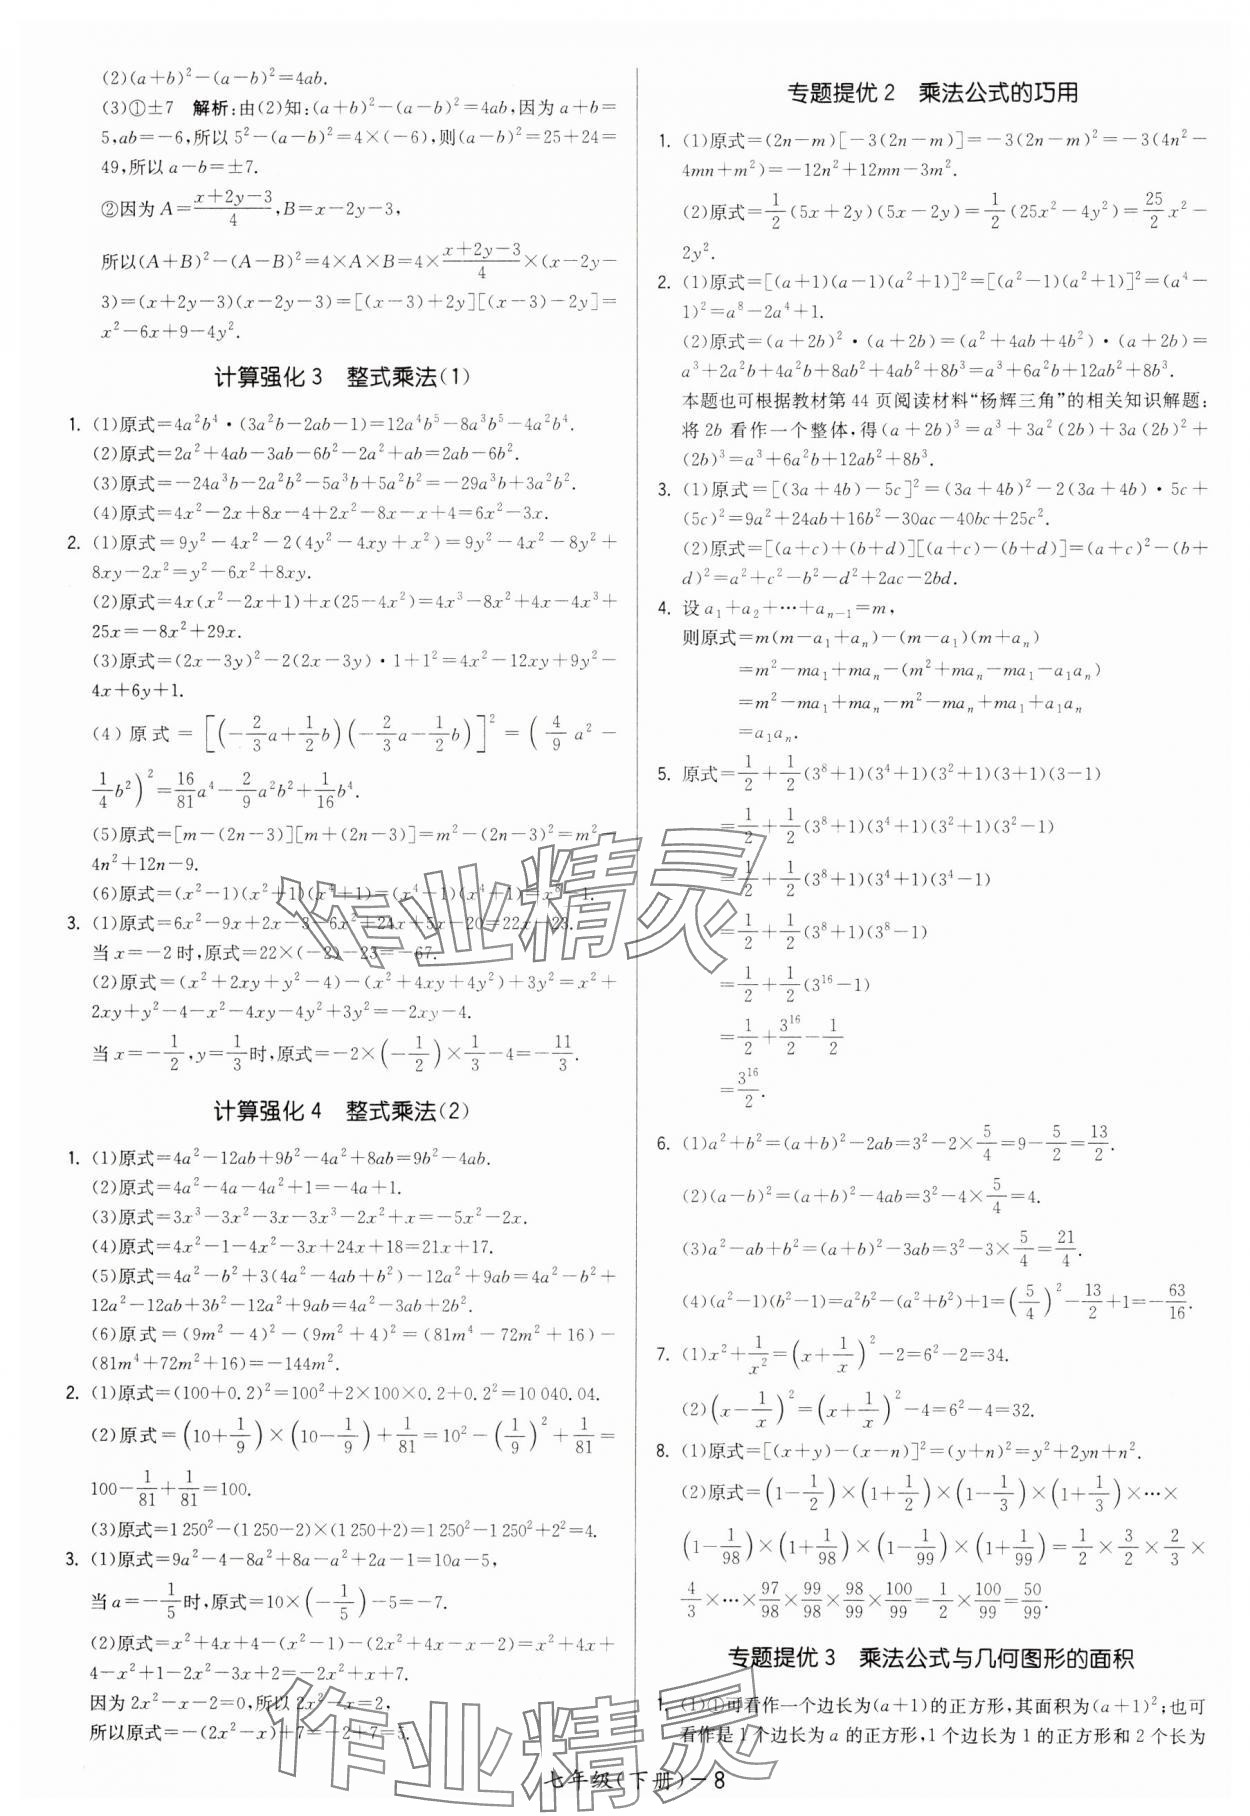 (2)(a+b)²-(a-b)²=4ab.
(3)①±7 解析:由(2)知:(a+b)²-(a-b)²=4ab,因为 a+b=
5,ab=-6,所以 5²-(a-b)²=4×(-6),则(a-b)²=25+24=
49,所以 a-b=±7.
②因为 A=\frac{x+2y-3}{4},B=x-2y-3,
所以(A+B)²-(A-B)²=4×A×B=4×\frac{x+2y-3}{4}×(x-2y-
3)=(x+2y-3)(x-2y-3)=[(x-3)+2y][(x-3)-2y]=
x²-6x+9-4y².
计算强化 3 整式乘法(1)
1. (1)原式=4a²b⁴·(3a²b-2ab-1)=12a⁴b⁵-8a³b⁵-4a²b⁴.
(2)原式=2a²+4ab-3ab-6b²-2a²+ab=2ab-6b².
(3)原式=-24a³b-2a²b²-5a³b+5a²b²=-29a³b+3a²b².
(4)原式=4x²-2x+8x-4+2x²-8x-x+4=6x²-3x.
2. (1)原式=9y²-4x²-2(4y²-4xy+x²)=9y²-4x²-8y²+
8xy-2x²=y²-6x²+8xy.
(2)原式=4x(x²-2x+1)+x(25-4x²)=4x³-8x²+4x-4x³+
25x=-8x²+29x.
(3)原式=(2x-3y)²-2(2x-3y)·1+1²=4x²-12xy+9y²-
4x+6y+1.
(4)原式=[(-\frac{2}{3}a+\frac{1}{2}b)(-\frac{2}{3}a-\frac{1}{2}b)]²=(\frac{4}{9}a²-
\frac{1}{4}b²)²=\frac{16}{81}a⁴-\frac{2}{9}a²b²+\frac{1}{16}b⁴.
(5)原式=[m-(2n-3)][m+(2n-3)]=m²-(2n-3)²=m²-
4n²+12n-9.
(6)原式=(x²-1)(x²+1)(x⁴+1)=(x⁴-1)(x⁴+1)=x⁸-1.
3. (1)原式=6x²-9x+2x-3-6x²+24x+5x-20=22x-23.
当 x=-2 时,原式=22×(-2)-23=-67.
(2)原式=(x²+2xy+y²-4)-(x²+4xy+4y²)+3y²=x²+
2xy+y²-4-x²-4xy-4y²+3y²=-2xy-4.
当 x=-\frac{1}{2},y=\frac{1}{3}时,原式=-2×(-\frac{1}{2})×\frac{1}{3}-4=-\frac{11}{3}.
计算强化 4 整式乘法(2)
1. (1)原式=4a²-12ab+9b²-4a²+8ab=9b²-4ab.
(2)原式=4a²-4a-4a²+1=-4a+1.
(3)原式=3x³-3x²-3x-3x³-2x²+x=-5x²-2x.
(4)原式=4x²-1-4x²-3x+24x+18=21x+17.
(5)原式=4a²-b²+3(4a²-4ab+b²)-12a²+9ab=4a²-b²+
12a²-12ab+3b²-12a²+9ab=4a²-3ab+2b².
(6)原式=(9m²-4)²-(9m²+4)²=(81m⁴-72m²+16)-
(81m⁴+72m²+16)=-144m².
2. (1)原式=(100+0.2)²=100²+2×100×0.2+0.2²=10 040.04.
(2)原式=(10+\frac{1}{9})×(10-\frac{1}{9})+\frac{1}{81}=10²-(\frac{1}{9})²+\frac{1}{81}=
100-\frac{1}{81}+\frac{1}{81}=100.
(3)原式=1 250²-(1 250-2)×(1 250+2)=1 250²-1 250²+2²=4.
3. (1)原式=9a²-4-8a²+8a-a²+2a-1=10a-5,
当 a=-\frac{1}{5}时,原式=10×(-\frac{1}{5})-5=-7.
(2)原式=x²+4x+4-(x²-1)-(2x²+4x-x-2)=x²+4x+
4-x²+1-2x²-4x+x+2=-2x²+x+7.
因为 2x²-x-2=0,所以 2x²-x=2,
所以原式=-(2x²-x)+7=-2+7=5.
专题提优 2 乘法公式的巧用
1. (1)原式=(2n-m)[-3(2n-m)]=-3(2n-m)²=-3(4n²-
4mn+m²)=-12n²+12mn-3m².
(2)原式=\frac{1}{2}(5x+2y)(5x-2y)=\frac{1}{2}(25x²-4y²)=\frac{25}{2}x²-
2y².
2. (1)原式=[(a+1)(a-1)(a²+1)]²=[(a²-1)(a²+1)]²=(a⁴-
1)²=a⁸-2a⁴+1.
(2)原式=(a+2b)²·(a+2b)=(a²+4ab+4b²)·(a+2b)=
a³+2a²b+4a²b+8ab²+4ab²+8b³=a³+6a²b+12ab²+8b³.
本题也可根据教材第 44 页阅读材料“杨辉三角”的相关知识解题:
将 2b 看作一个整体,得(a+2b)³=a³+3a²(2b)+3a(2b)²+
(2b)³=a³+6a²b+12ab²+8b³.
3. (1)原式=[(3a+4b)-5c]²=(3a+4b)²-2(3a+4b)·5c+
(5c)²=9a²+24ab+16b²-30ac-40bc+25c².
(2)原式=[(a+c)+(b+d)][(a+c)-(b+d)]=(a+c)²-(b+
d)²=a²+c²-b²-d²+2ac-2bd.
4. 设 a₁+a₂+…+aₙ₋₁=m,
则原式=m(m-a₁+aₙ)-(m-a₁)(m+aₙ)
=m²-ma₁+maₙ-(m²+maₙ-ma₁-a₁aₙ)
=m²-ma₁+maₙ-m²-maₙ+ma₁+a₁aₙ
=a₁aₙ.
5. 原式=\frac{1}{2}+\frac{1}{2}(3⁸+1)(3⁴+1)(3²+1)(3+1)(3-1)
=\frac{1}{2}+\frac{1}{2}(3⁸+1)(3⁴+1)(3²+1)(3²-1)
=\frac{1}{2}+\frac{1}{2}(3⁸+1)(3⁴+1)(3⁴-1)
=\frac{1}{2}+\frac{1}{2}(3⁸+1)(3⁸-1)
=\frac{1}{2}+\frac{1}{2}(3¹⁶-1)
=\frac{1}{2}+\frac{3¹⁶}{2}-\frac{1}{2}
=\frac{3¹⁶}{2}.
6. (1)a²+b²=(a+b)²-2ab=3²-2×\frac{5}{4}=9-\frac{5}{2}=\frac{13}{2}.
(2)(a-b)²=(a+b)²-4ab=3²-4×\frac{5}{4}=4.
(3)a²-ab+b²=(a+b)²-3ab=3²-3×\frac{5}{4}=\frac{21}{4}.
(4)(a²-1)(b²-1)=a²b²-(a²+b²)+1=(\frac{5}{4})²-\frac{13}{2}+1=-\frac{63}{16}.
7. (1)x²+\frac{1}{x²}=(x+\frac{1}{x})²-2=6²-2=34.
(2)(x-\frac{1}{x})²=(x+\frac{1}{x})²-4=6²-4=32.
8. (1)原式=[(x+y)-(x-n)]²=(y+n)²=y²+2yn+n².
(2)原式=(1-\frac{1}{2})×(1+\frac{1}{2})×(1-\frac{1}{3})×(1+\frac{1}{3})×…×
(1-\frac{1}{98})×(1+\frac{1}{98})×(1-\frac{1}{99})×(1+\frac{1}{99})=\frac{1}{2}×\frac{3}{2}×\frac{2}{3}×
\frac{4}{3}×…×\frac{97}{98}×\frac{99}{98}×\frac{98}{99}×\frac{100}{99}=\frac{1}{2}×\frac{100}{99}=\frac{50}{99}.
专题提优 3 乘法公式与几何图形的面积
1. (1)①可看作一个边长为(a+1)的正方形,其面积为(a+1)²;也可
看作是 1 个边长为 a 的正方形,1 个边长为 1 的正方形和 2 个长为
七年级(下册)-8
作业精灵
作业精灵